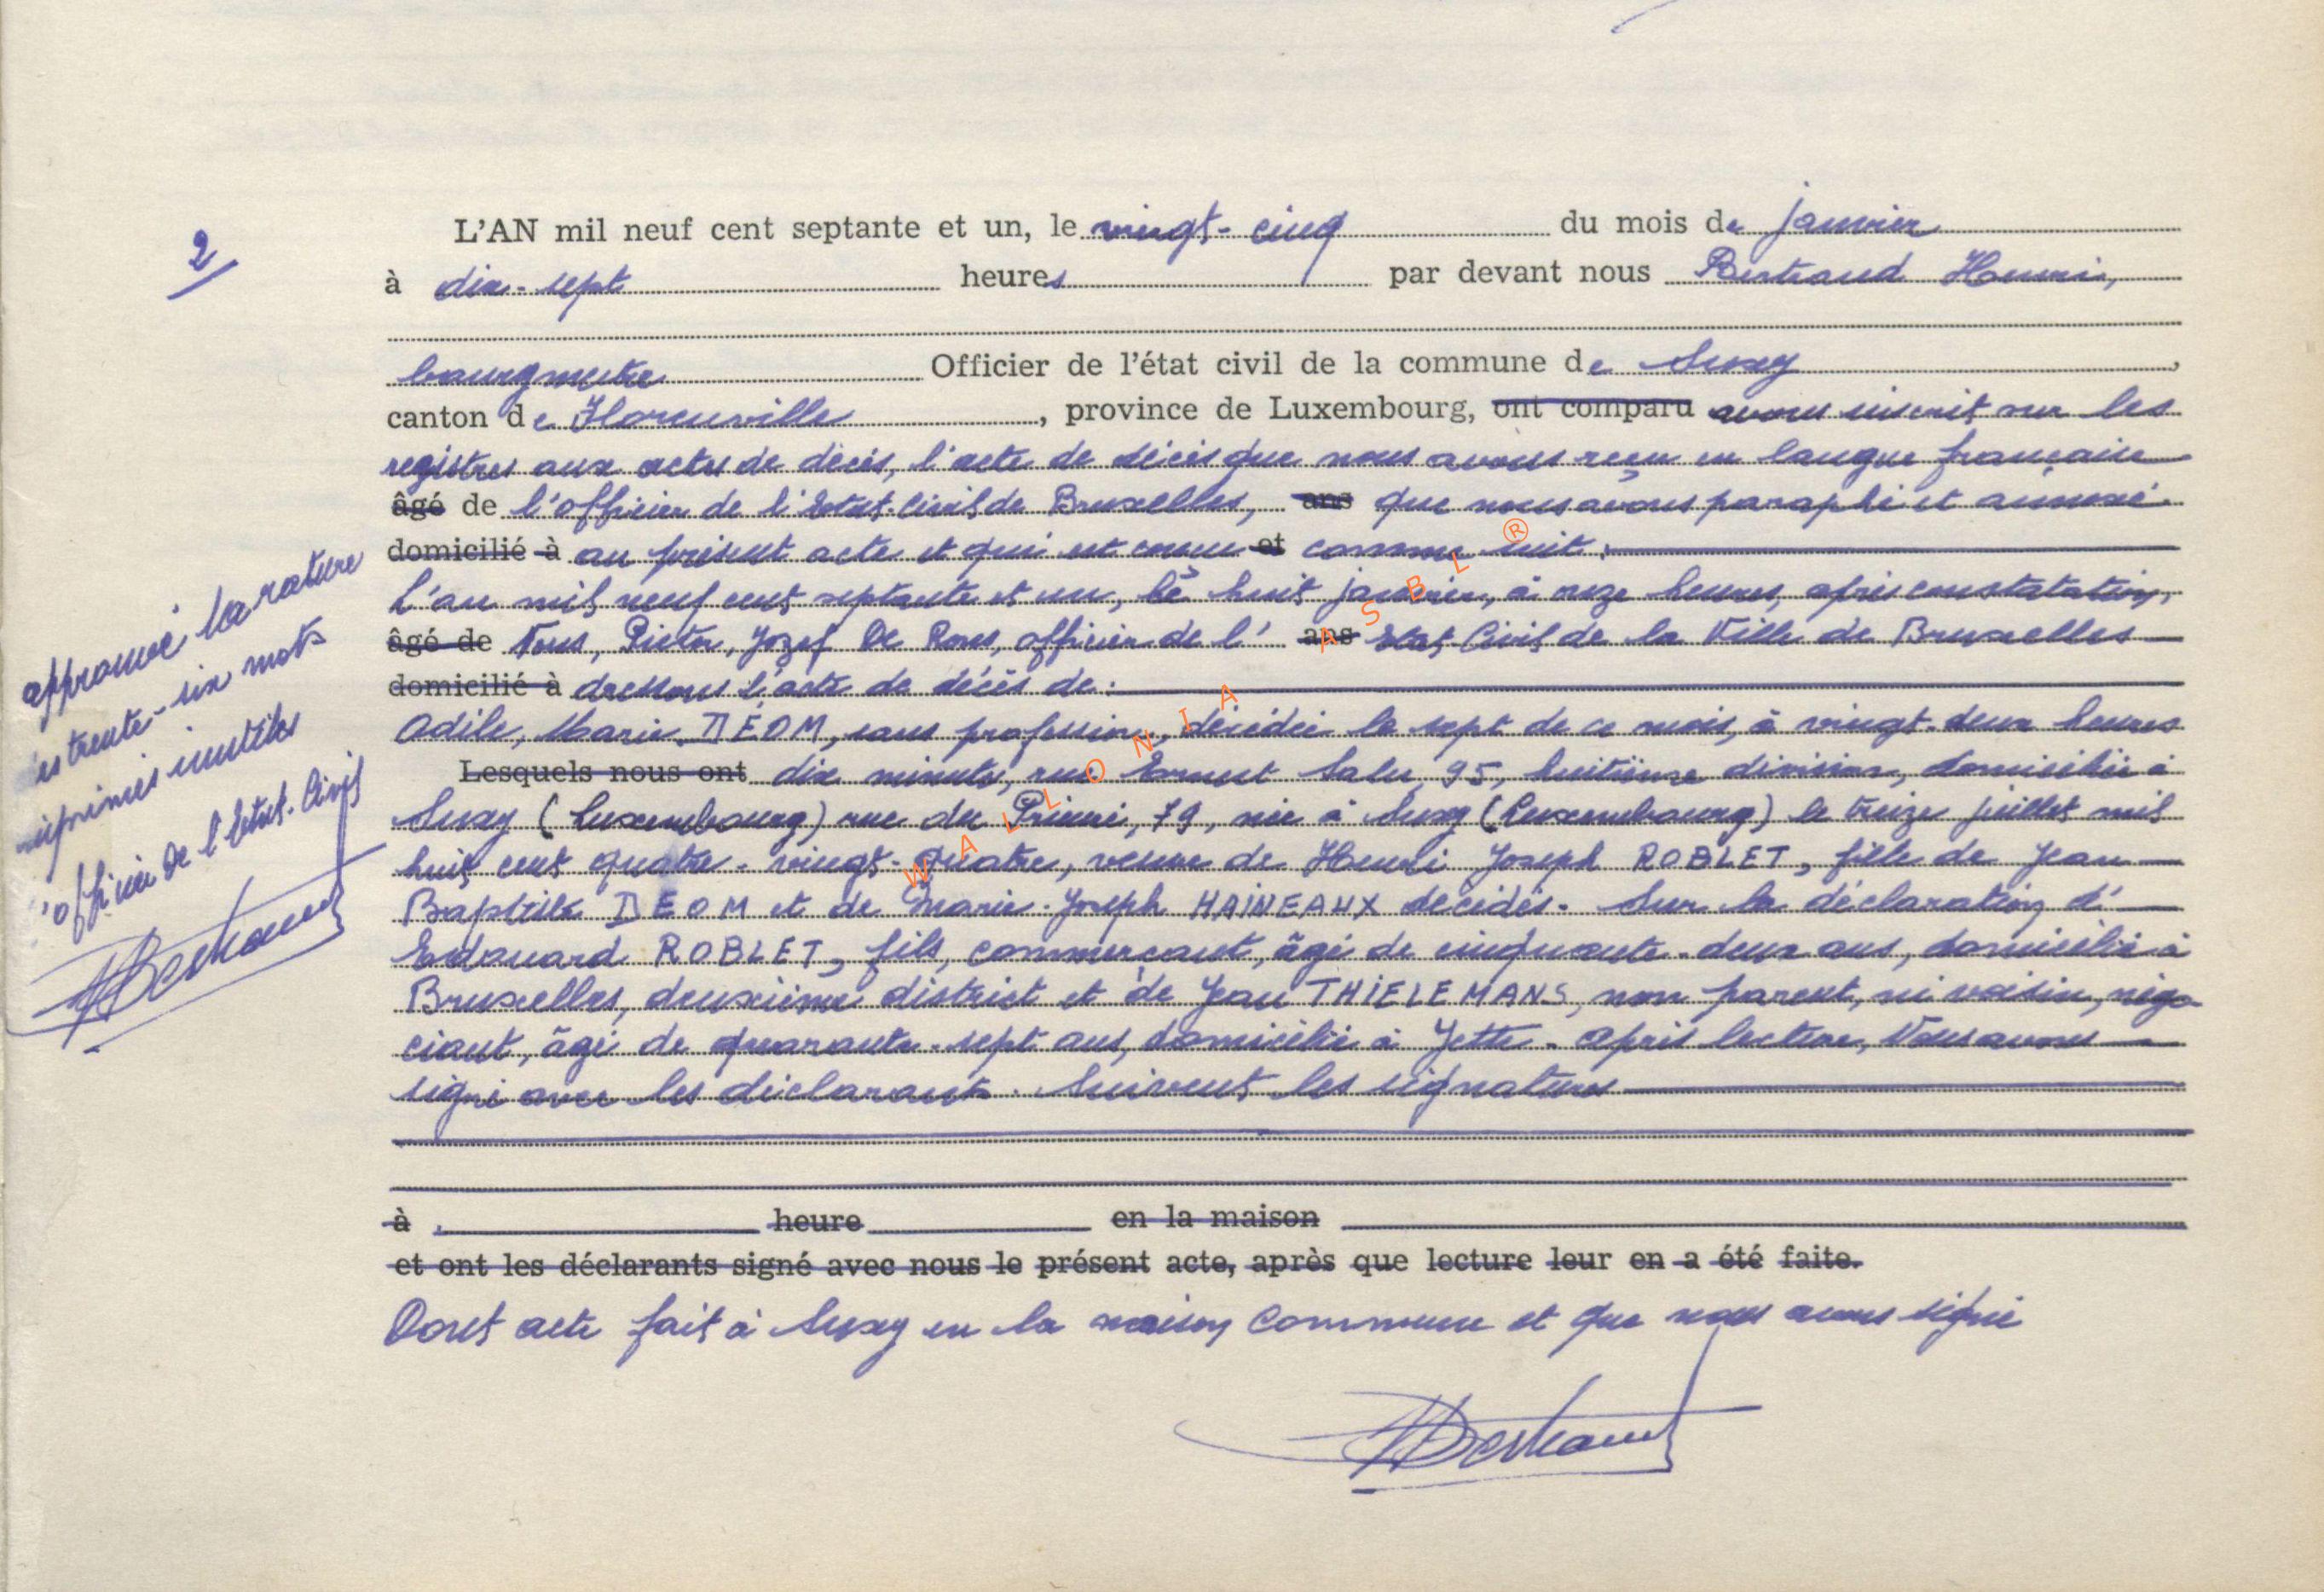 2/
L'AN mil neuf cent septante et un, le vingt-cinq du mois de janvier
à dix-sept heures par devant nous Bertrand Henri,
bourgmestre Officier de l'état civil de la commune de Suxy,
canton de Florenville, province de Luxembourg, ont comparu avons inscrit sur les
registres aux actes de décès, l'acte de décès que nous avons reçu en langue française
âgé de l'officier de l'Etat-Civil de Bruxelles, ans que nous avons paraphé et annexé
domicilié à au présent acte et qui est conçu et comme suit :
L'an mil neuf cent septante et un, le huit janvier, à onze heures, après constatation,
âgé de Nous, Pieter, Jozef De Ros, officier de l' ans Etat Civil de la Ville de Bruxelles
domicilié à dressons l'acte de décès de :
Odile, Marie DÉOM, sans profession, décédée le sept de ce mois, à vingt-deux heures
Lesquels nous ont dix minutes, rue Ernest Salu, 95, huitième division, domiciliée à
Suxy (Luxembourg) rue du Prieuré, 79, née à Suxy (Luxembourg) le treize juillet mil
huit cent quatre-vingt-quatre, veuve de Henri Joseph ROBLET, fille de Jean
Baptiste DEOM et de Marie-Joseph HAINEAUX décédés. Sur la déclaration d'
Edouard ROBLET, fils, commerçant, âgé de cinquante-deux ans, domicilié à
Bruxelles, deuxième district et de Jean THIELEMANS, non parent, ni voisin, négo
ciant, âgé de quarante-sept ans, domicilié à Jette. Après lecture, Nous avons
signé avec les déclarants. Suivent les signatures
à heure en la maison
et ont les déclarants signé avec nous le présent acte, après que lecture leur en a été faite.
Dont acte fait à Suxy en la maison Commune et que nous avons signé
HBertrand
approuvé la rature
es trente-six mots
imprimés inutiles
l'officier de l'Etat-Civil
HBertrand
WALLONIA ASBL ®